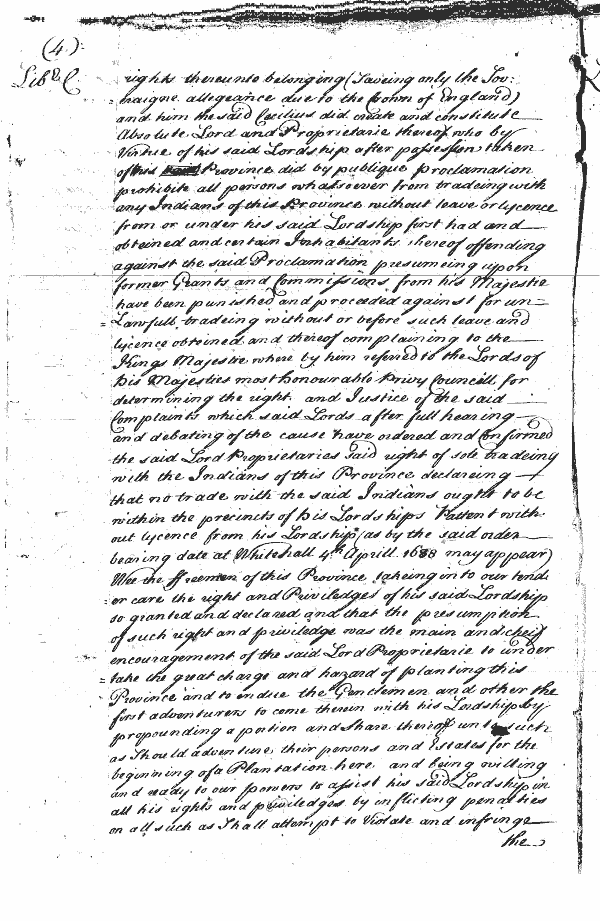 (4):
Lib.r C
rights thereunto belonging (Saveing only the Sov:
= raigne allegeance due to the Crown of England)
and him the said Cecilius did create and constitute
Absolute Lord and Proprietarie thereof who by
Virtue of his said Lordship after possession taken
of this Province did by publique proclamation
prohibite all persons whatsoever from tradeing with
any Indians of this Province without leave or lycence
from or under his said Lordship first had and
obteined and certain Inhabitants thereof offending
against the said Proclamation presumeing upon
former Grants and Commissions, from his Majestie
have been punished and proceded against for un=
= Lawfull tradeing without or before such leave and
lycence obteined and thereof complaining to the
Kings Majestie where by him referred to the Lords of
his Majesties most honourable Privy Councill for
determining the right and Justice of the said
Complaints which said Lords after full hearing
and debating of the cause have ordered and Confirmed
the said Lord Proprietaries said right of sole tradeing
with the Indians of this Province declareing
that no trade with the said Indians ought to be
within the precincts of his Lordships Pattent with-
out lycence from his Lordship (as by the said order
bearing date at Whitehall 4th Aprill 1638 may appear)
Wee the ffreemen of this Province takeing into our tend
= er care the right and Priviledges of his said Lordship
so granted and declared and that the presumption
of such right and priviledge was the main and cheif
encouragement of the said Lord Proprietarie to under
= take the great charge and hazard of planting this
Province and to endue the Gentlemen and other the
first adventurers to come therein with his Lordship by
propounding a portion and share thereof unto such
as should adventure their persons and Estates for the
beginning of a Plantation here and being willing
and ready to our powers to assist his said Lordship in
all his rights and priviledges by inflicting penalties
on all such as shall attempt to Violate and infringe
the